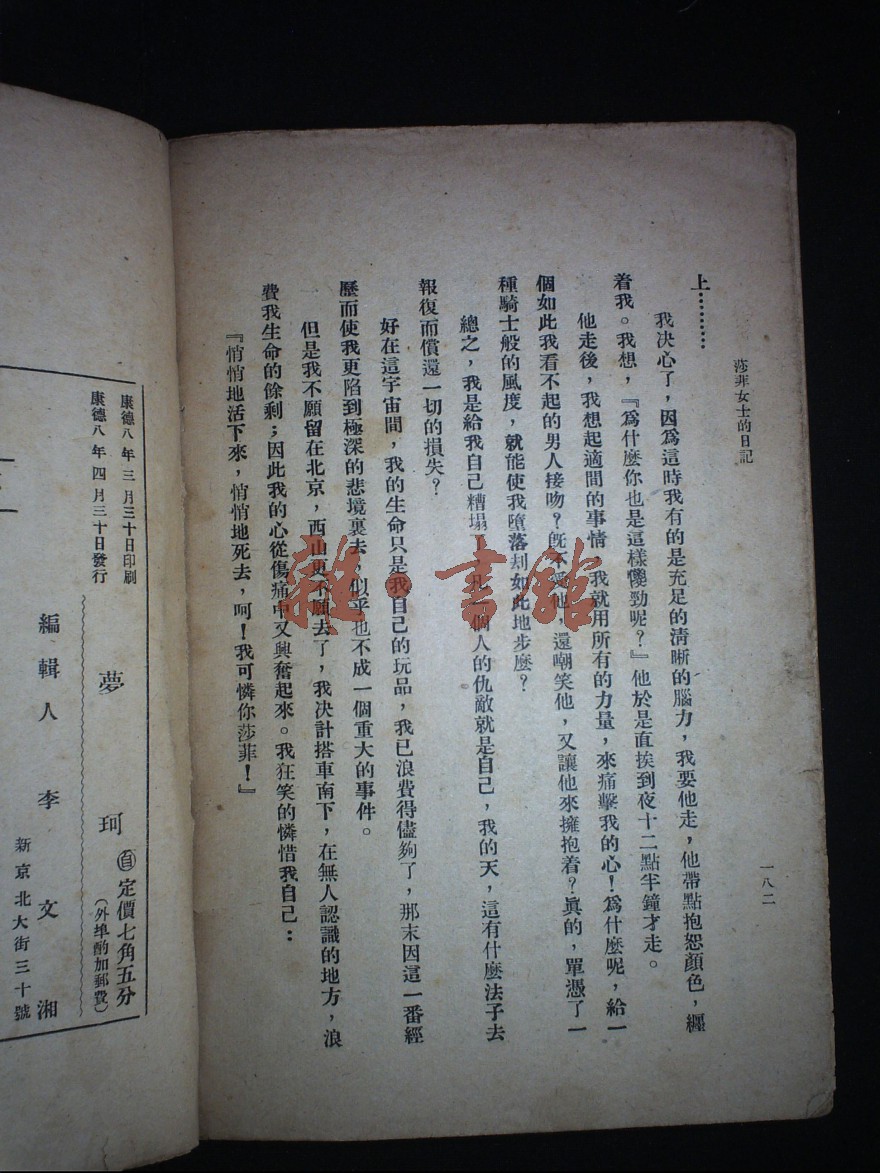 莎菲女士的日記
一八二
上………
我決心了，因爲這時我有的是充足的清晰的腦力，我要他走，他帶點抱恕顏色，纏
着我。我想，『爲什麼你也是這樣儍勁呢？』他於是直挨到夜十二點半鐘才走。
他走後，我想起適間的事情 我就用所有的力量，來痛擊我的心！爲什麼呢，給一
個如此我看不起的男人接吻？旣不愛他，還嘲笑他，又讓他來擁抱着？眞的，單憑了一
種騎士般的風度，就能使我墮落到如此地步麼？
總之，我是給我自己糟塌了，凡一個人的仇敵就是自己，我的天，這有什麼法子去
報復而償還一切的損失？
好在這宇宙間，我的生命只是我自己的玩品，我已浪費得儘夠了，那末因這一番經
歷而使我更陷到極深的悲境裏去，似乎也不成一個重大的事件。
但是我不願留在北京，西山更不願去了，我決計搭車南下，在無人認識的地方，浪
費我生命的餘剩；因此我的心從傷痛中又興奮起來。我狂笑的憐惜我自己：
『悄悄地活下來，悄悄地死去，呵！我可憐你莎菲！』
康德八年三月三十日印刷
康德八年四月三十日發行
夢珂
定價七角五分
（外埠酌加郵費）
編輯人 李文湘
新京北大街三十號
雜·書館